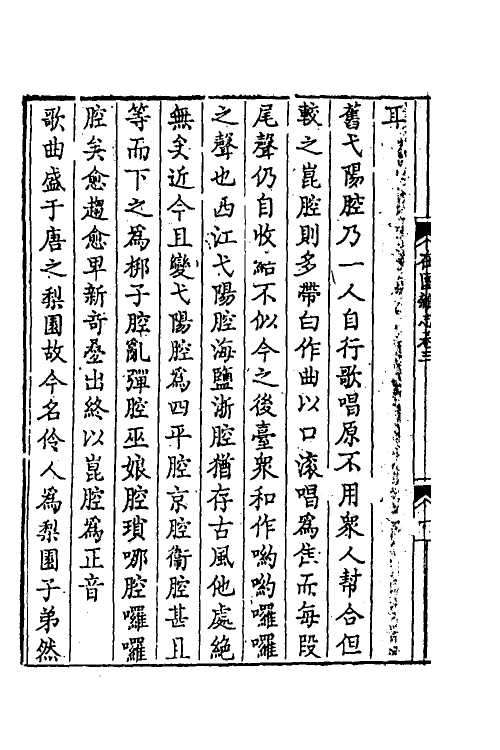 耳
舊弋陽腔乃一人自行歌唱原不用衆人幫合但
較之崑腔則多帶白作曲以口滚唱爲佳而每段
尾聲仍自收結不似今之後臺衆和作喲喲囉囉
之聲也西江弋陽腔海鹽浙腔猶存古風他處絶
無矣近今且變弋陽腔爲四平腔京腔衛腔甚且
等而下之爲梆子腔亂彈腔巫娘腔瑣哪腔囉囉
腔矣愈趨愈卑新奇疊出終以崑腔爲正音
歌曲盛于唐之梨園故今名伶人爲梨園子弟然
在園雜志卷三